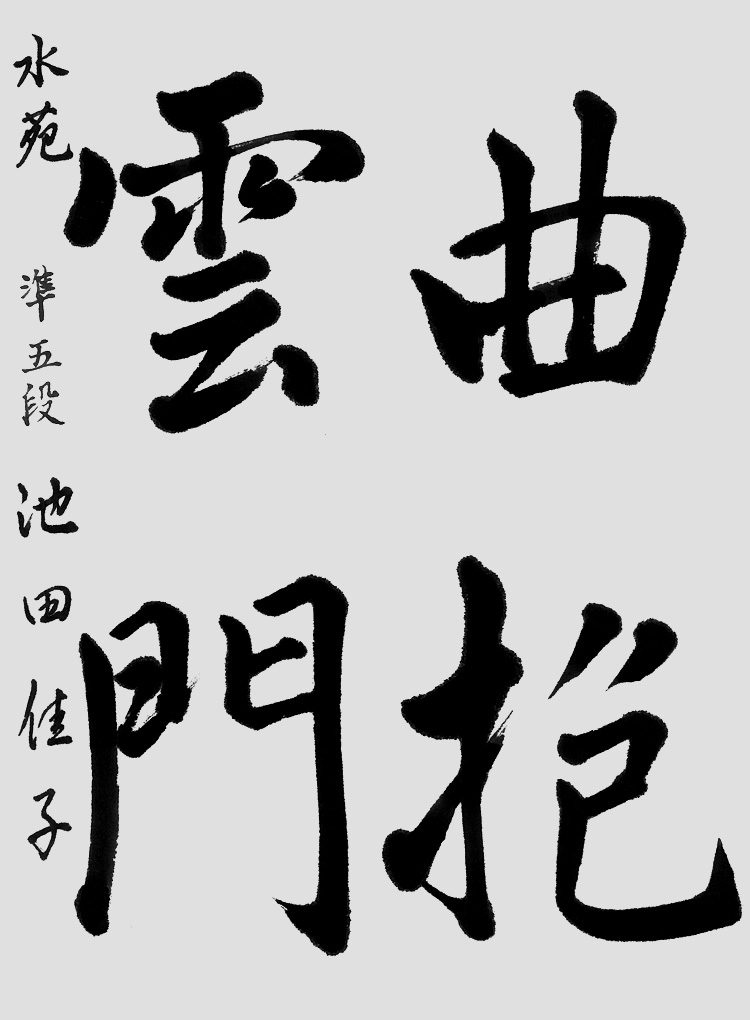 曲抱
雲門
水苑 準五段 池田佳子